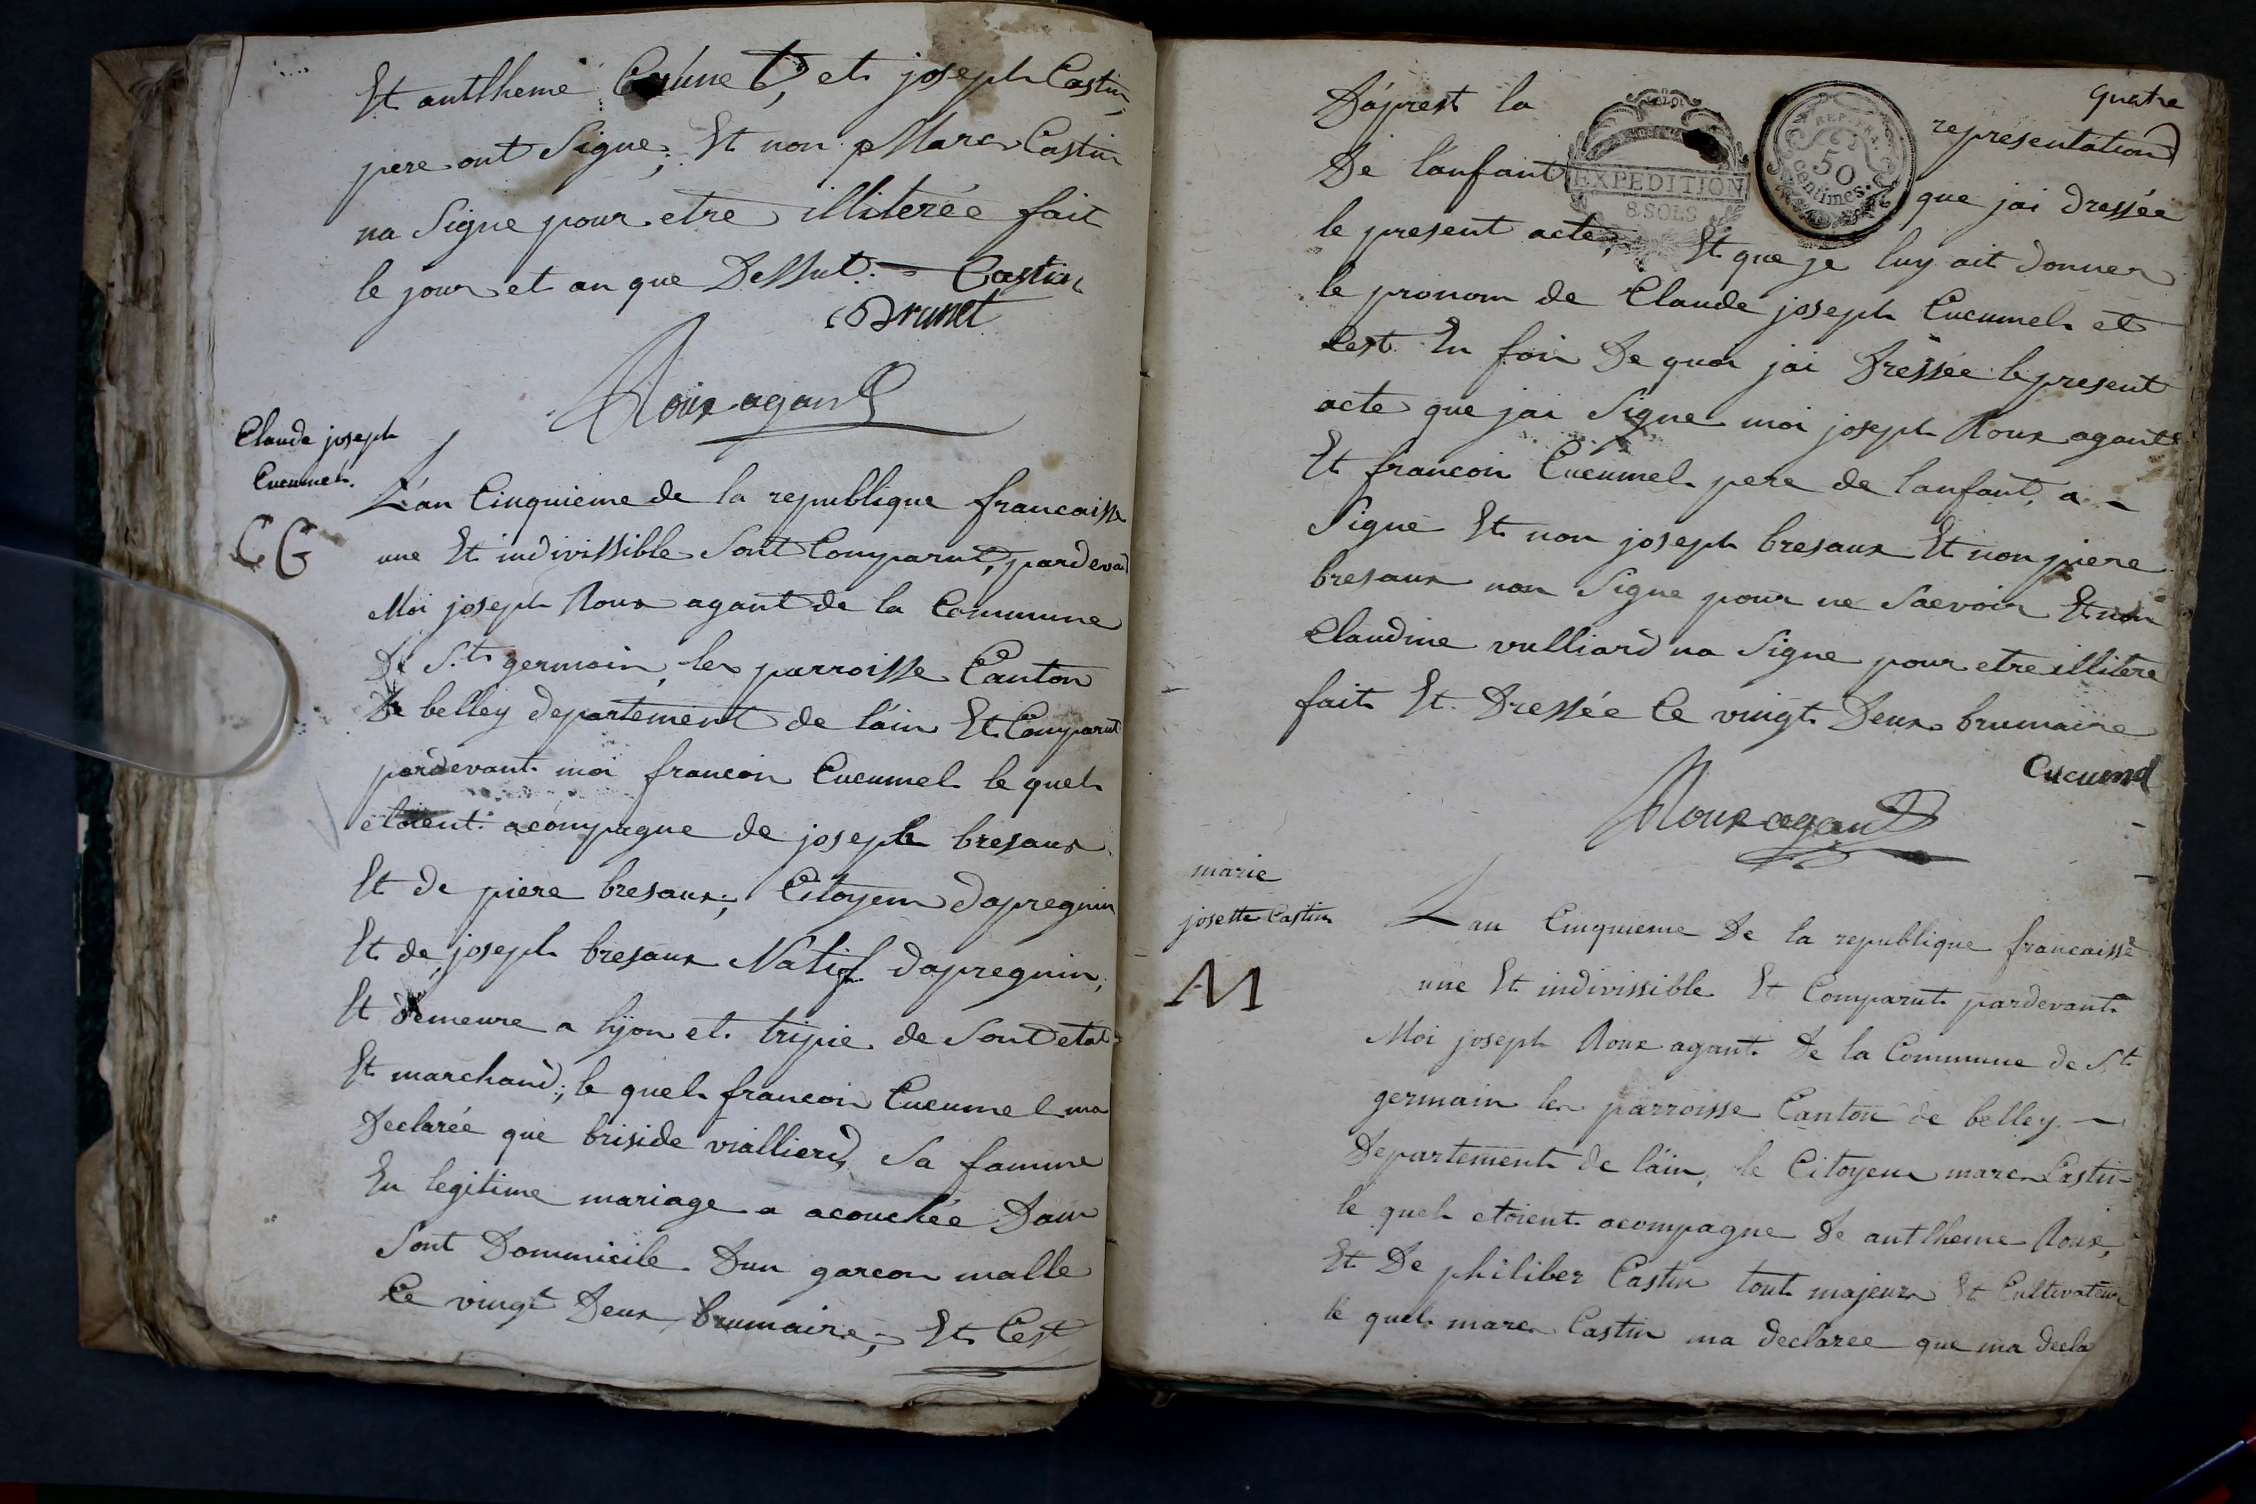 Et antlheme Brunet, et joseph Castin,
pere ont Signe; Et non Marc Castin
na Signe pour etre illiterée fait
le jour et an que Dessut. Castin
Brunet
Roux agant
Claude joseph
Cucumel.
CG
L'an Cinquieme de la republique francaisse
une Et indivissible Sont Comparut, pardevant
Moi joseph Roux agant de la Commune
De S.t germain les parroisse Canton
De belley departement de l'ain Et Comparut
pardevant moi francoin Cucumel le quel
etoient acompagne de joseph bresaux
Et de piere bresaux; Citoyen dapregnin
Et de joseph bresaux Natif dapregnin,
Et demeure a lÿon et tripie de Sont etat
Et marchand; le quel francoin Cucumel ma
Declarée que briside viallierd Sa famme
En legitime mariage a acouchée Dam
Sont Dommicile Dun garcon malle
Ce vingt Deux brumaire, Et Cest
quatre
D'aprest la representation
EXPEDITION
8 SOLS
50
Centimes.
De l'anfant que jai dressée
le present acte, Et que je luy ait donner
le pronom de Claude joseph Cucumel et
Cest En foin De quoi jai Dressée le present
acte que jai Signe moi joseph Roux agant
Et francoin Cucumel pere de lanfant, a
Signe Et non joseph bresaux Et non piere
bresaux non Signe pour ne Saevoir Et non
Claudine vulliard na Signe pour etre illitere
fait Et Dressée Ce vingt Deux brumaire
Cucumel
Roux agant
marie
josette Castin
M
Lan Cinquieme De la republique francaisse
une Et indivissible Et Comparut pardevant
Moi joseph Roux agant De la Commune de S.t
germain les parroisse Canton de belley
Departement de l'ain, le Citoyen marc Castin
le quel etoient acompagne De antlheme Roux,
Et De philiber Castin tout majeur Et Cultivateur
le quel marc Castin ma declaree que ma decla